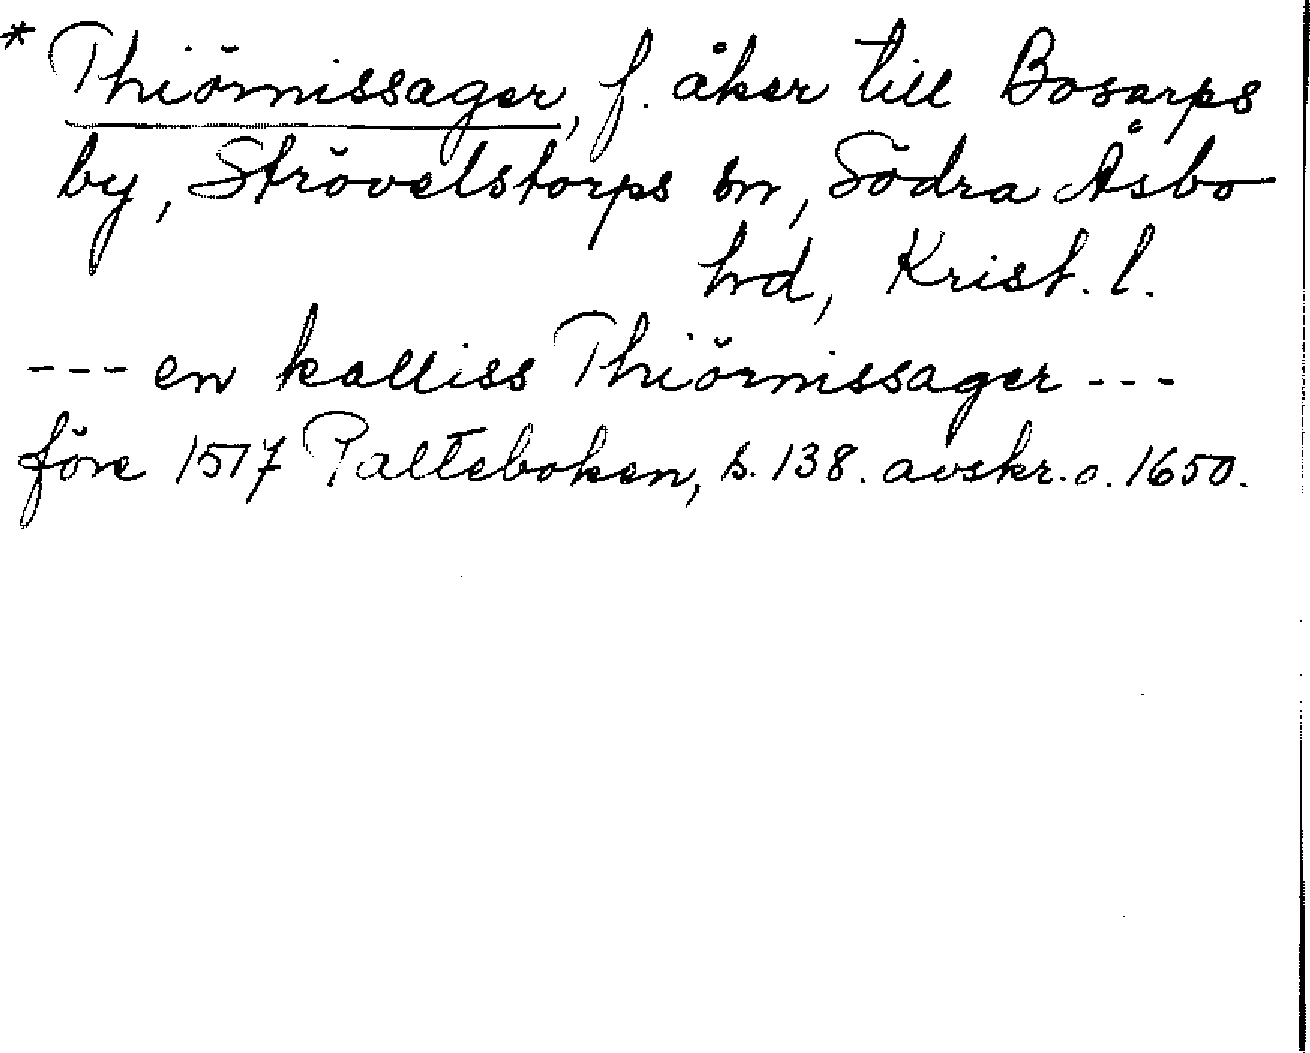 * Thiörnissager, f. åker till Bosarps
by, Strövelstorps sn, Södra Åsbo
hrd, Krist. l.
--- en kalliss Thiörnissager ---
före 1517 Palteboken, s. 138. avskr. o. 1650.